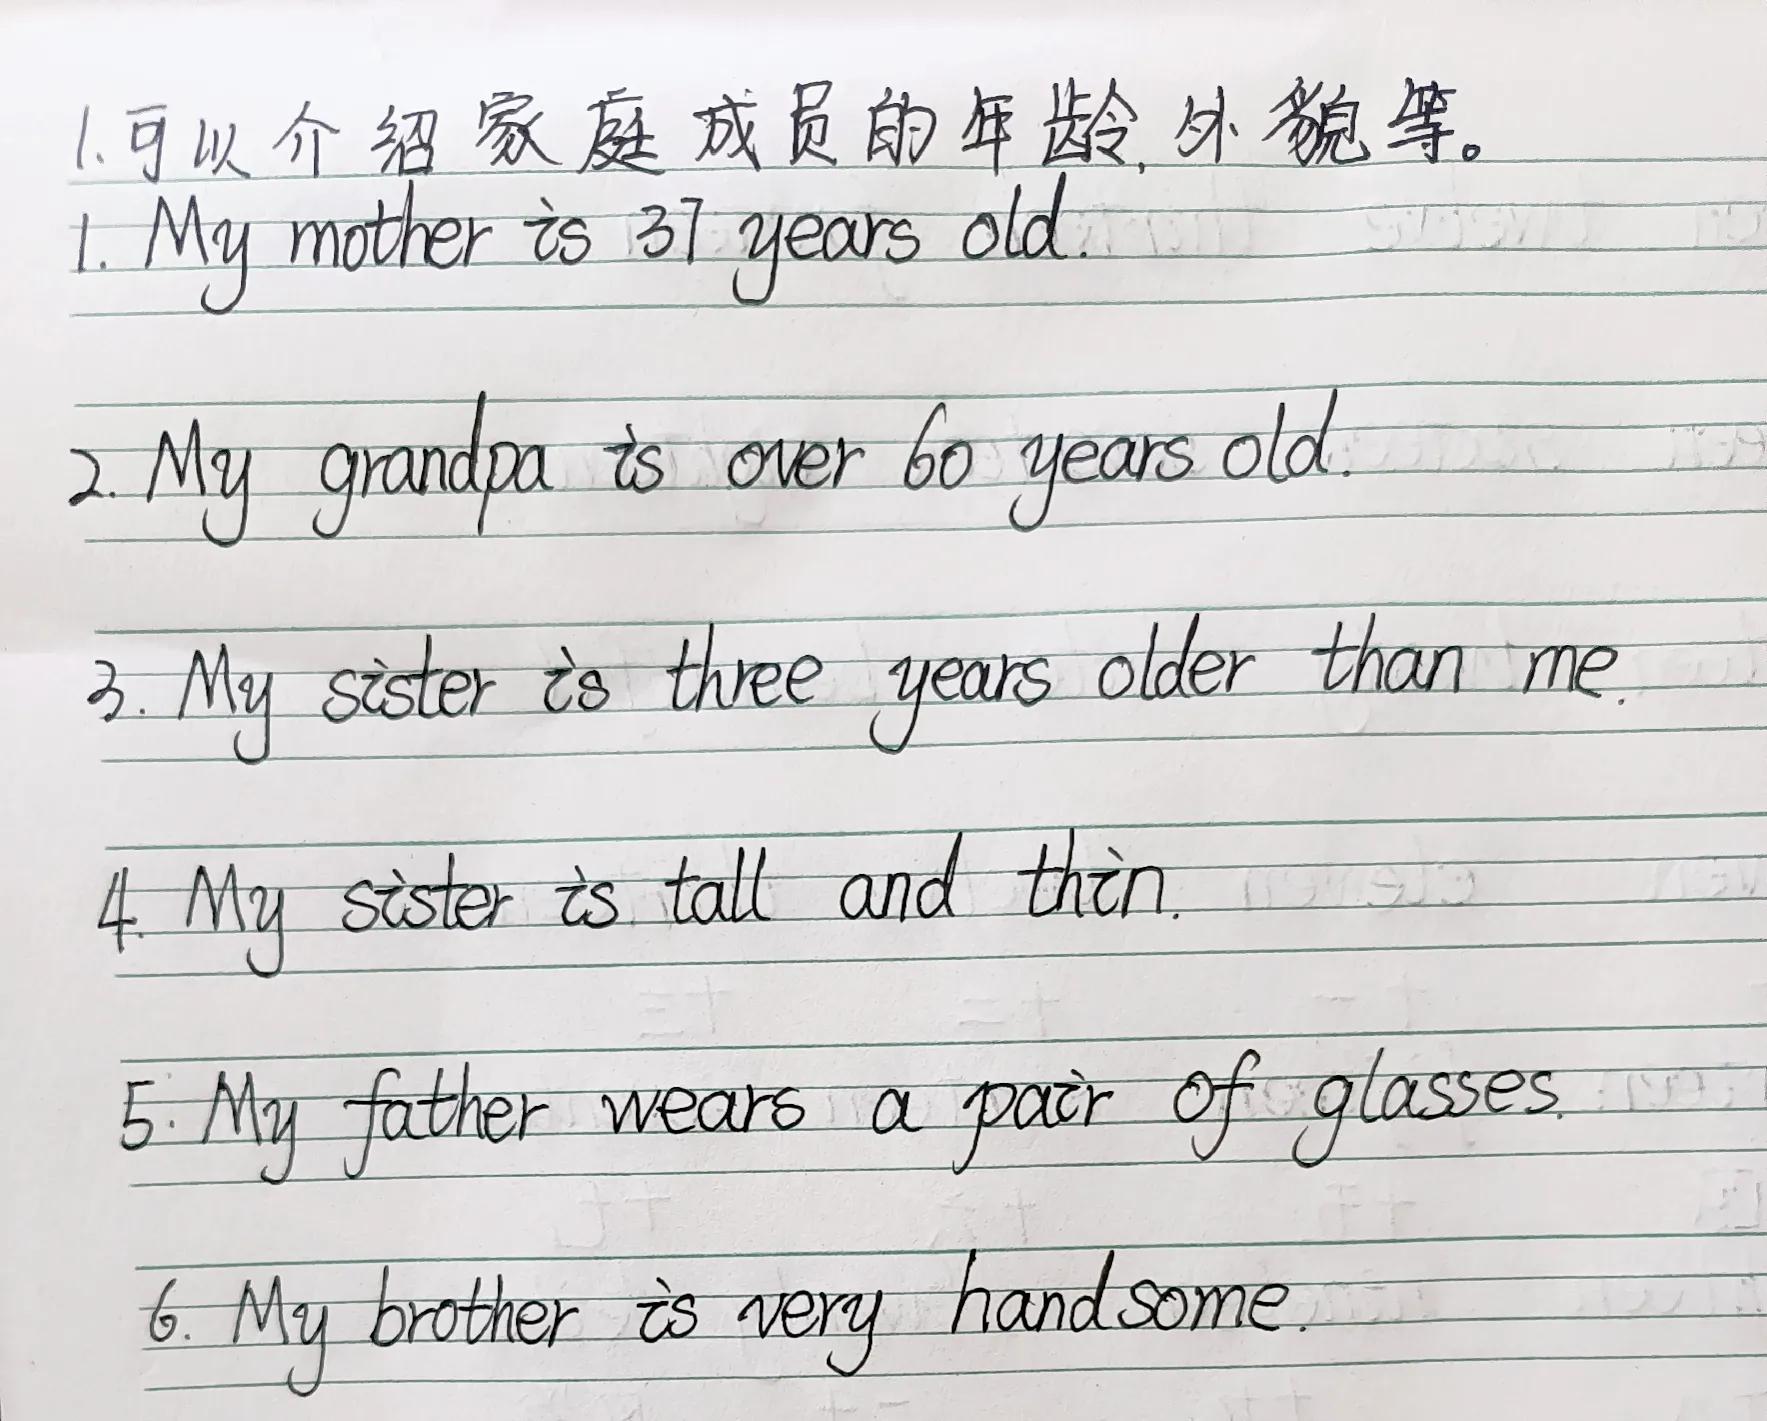 1.可以介绍家庭成员的年龄,外貌等。
1. My mother is 37 years old.
2. My grandpa is over 60 years old.
3. My sister is three years older than me.
4. My sister is tall and thin.
5. My father wears a pair of glasses.
6. My brother is very handsome.